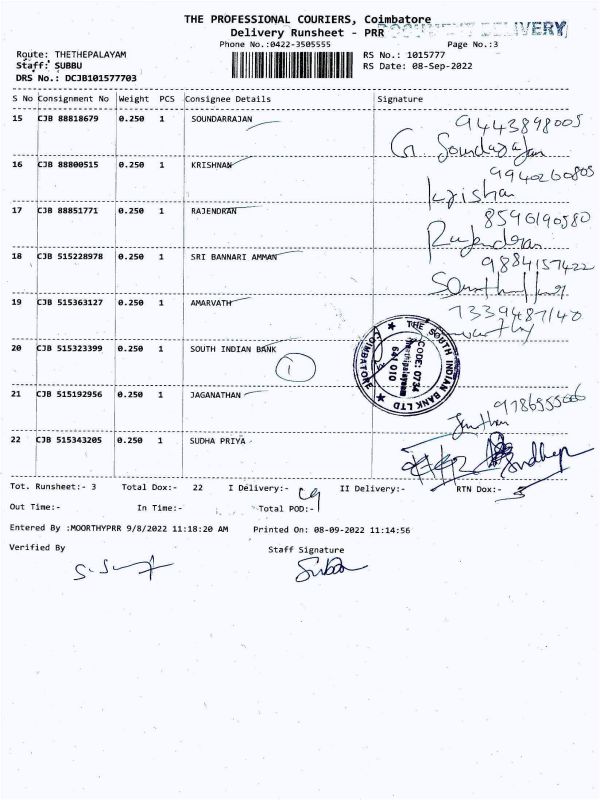 THE PROFESSIONAL COURIERS, Coimbatore
DOCUMENT DELIVERY
Delivery Runsheet - PRR
Phone No.:0422-3505555
Page No.:3
Route: THETHEPALAYAM
RS No.: 1015777
Staff: SUBBU
RS Date: 08-Sep-2022
DRS No.: DCJB101577703
S No Consignment No Weight PCS Consignee Details Signature
15 CJB 88818679 0.250 1 SOUNDARRAJAN 9443898005
G. Soundarajan
16 CJB 88800515 0.250 1 KRISHNAN 9940260805
krishan
17 CJB 88851771 0.250 1 RAJENDRAN 8590190580
Rajendran
18 CJB 515228978 0.250 1 SRI BANNARI AMMAN 9884157422
19 CJB 515363127 0.250 1 AMARVATH 7339487140
20 CJB 515323399 0.250 1 SOUTH INDIAN BANK
1
THE SOUTH INDIAN BANK LTD
COIMBATORE
CODE: 0734
Thethipalayam
641 010
21 CJB 515192956 0.250 1 JAGANATHAN 9786555666
22 CJB 515343205 0.250 1 SUDHA PRIYA
Tot. Runsheet:- 3 Total Dox:- 22 I Delivery:- II Delivery:- RTN Dox:-
Out Time:- In Time:- Total POD:-
Entered By :MOORTHYPRR 9/8/2022 11:18:20 AM Printed On: 08-09-2022 11:14:56
Verified By Staff Signature
Subbu